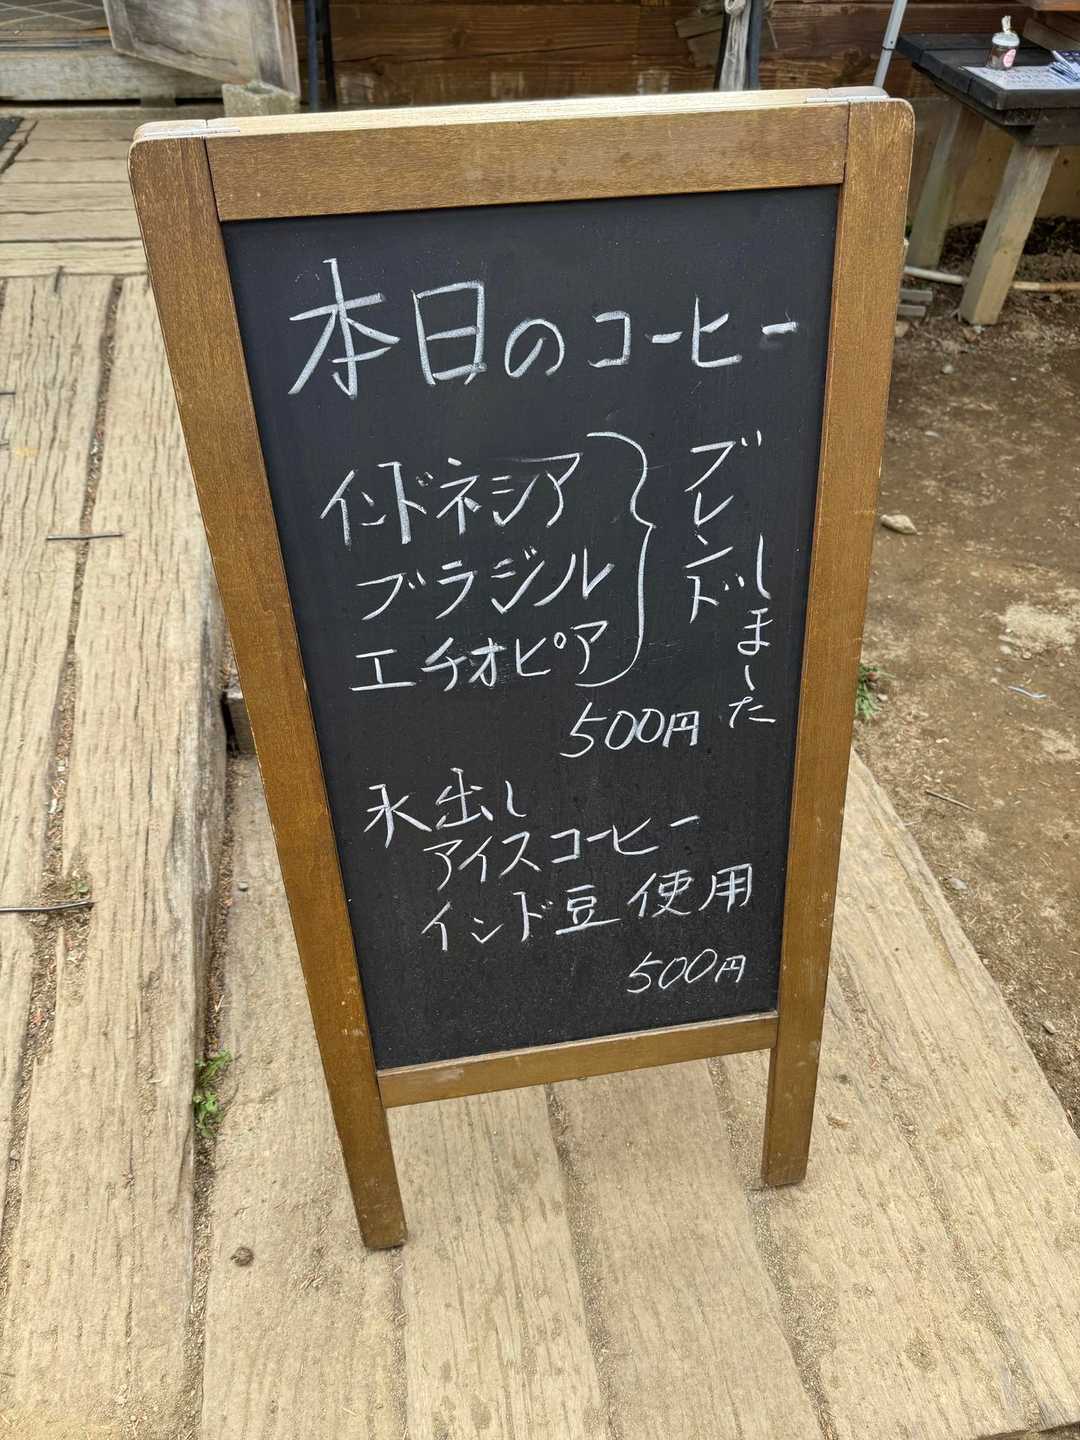 本日のコーヒー
インドネシア
ブラジル
エチオピア
ブレンド
しました
500円
水出し
アイスコーヒー
インド豆使用
500円